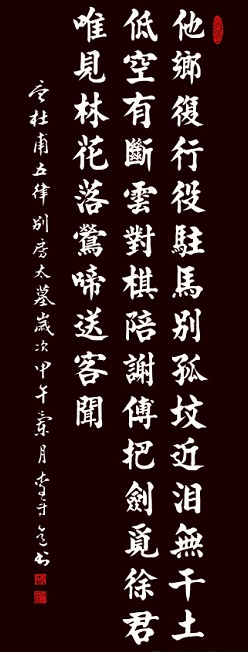 他鄉復行役駐馬別孤坟近泪無干土
低空有斷雲對棋陪謝傅把劍覓徐君
唯見林花落鶯啼送客聞
杜甫五律別房太墓歲次甲午月李守书